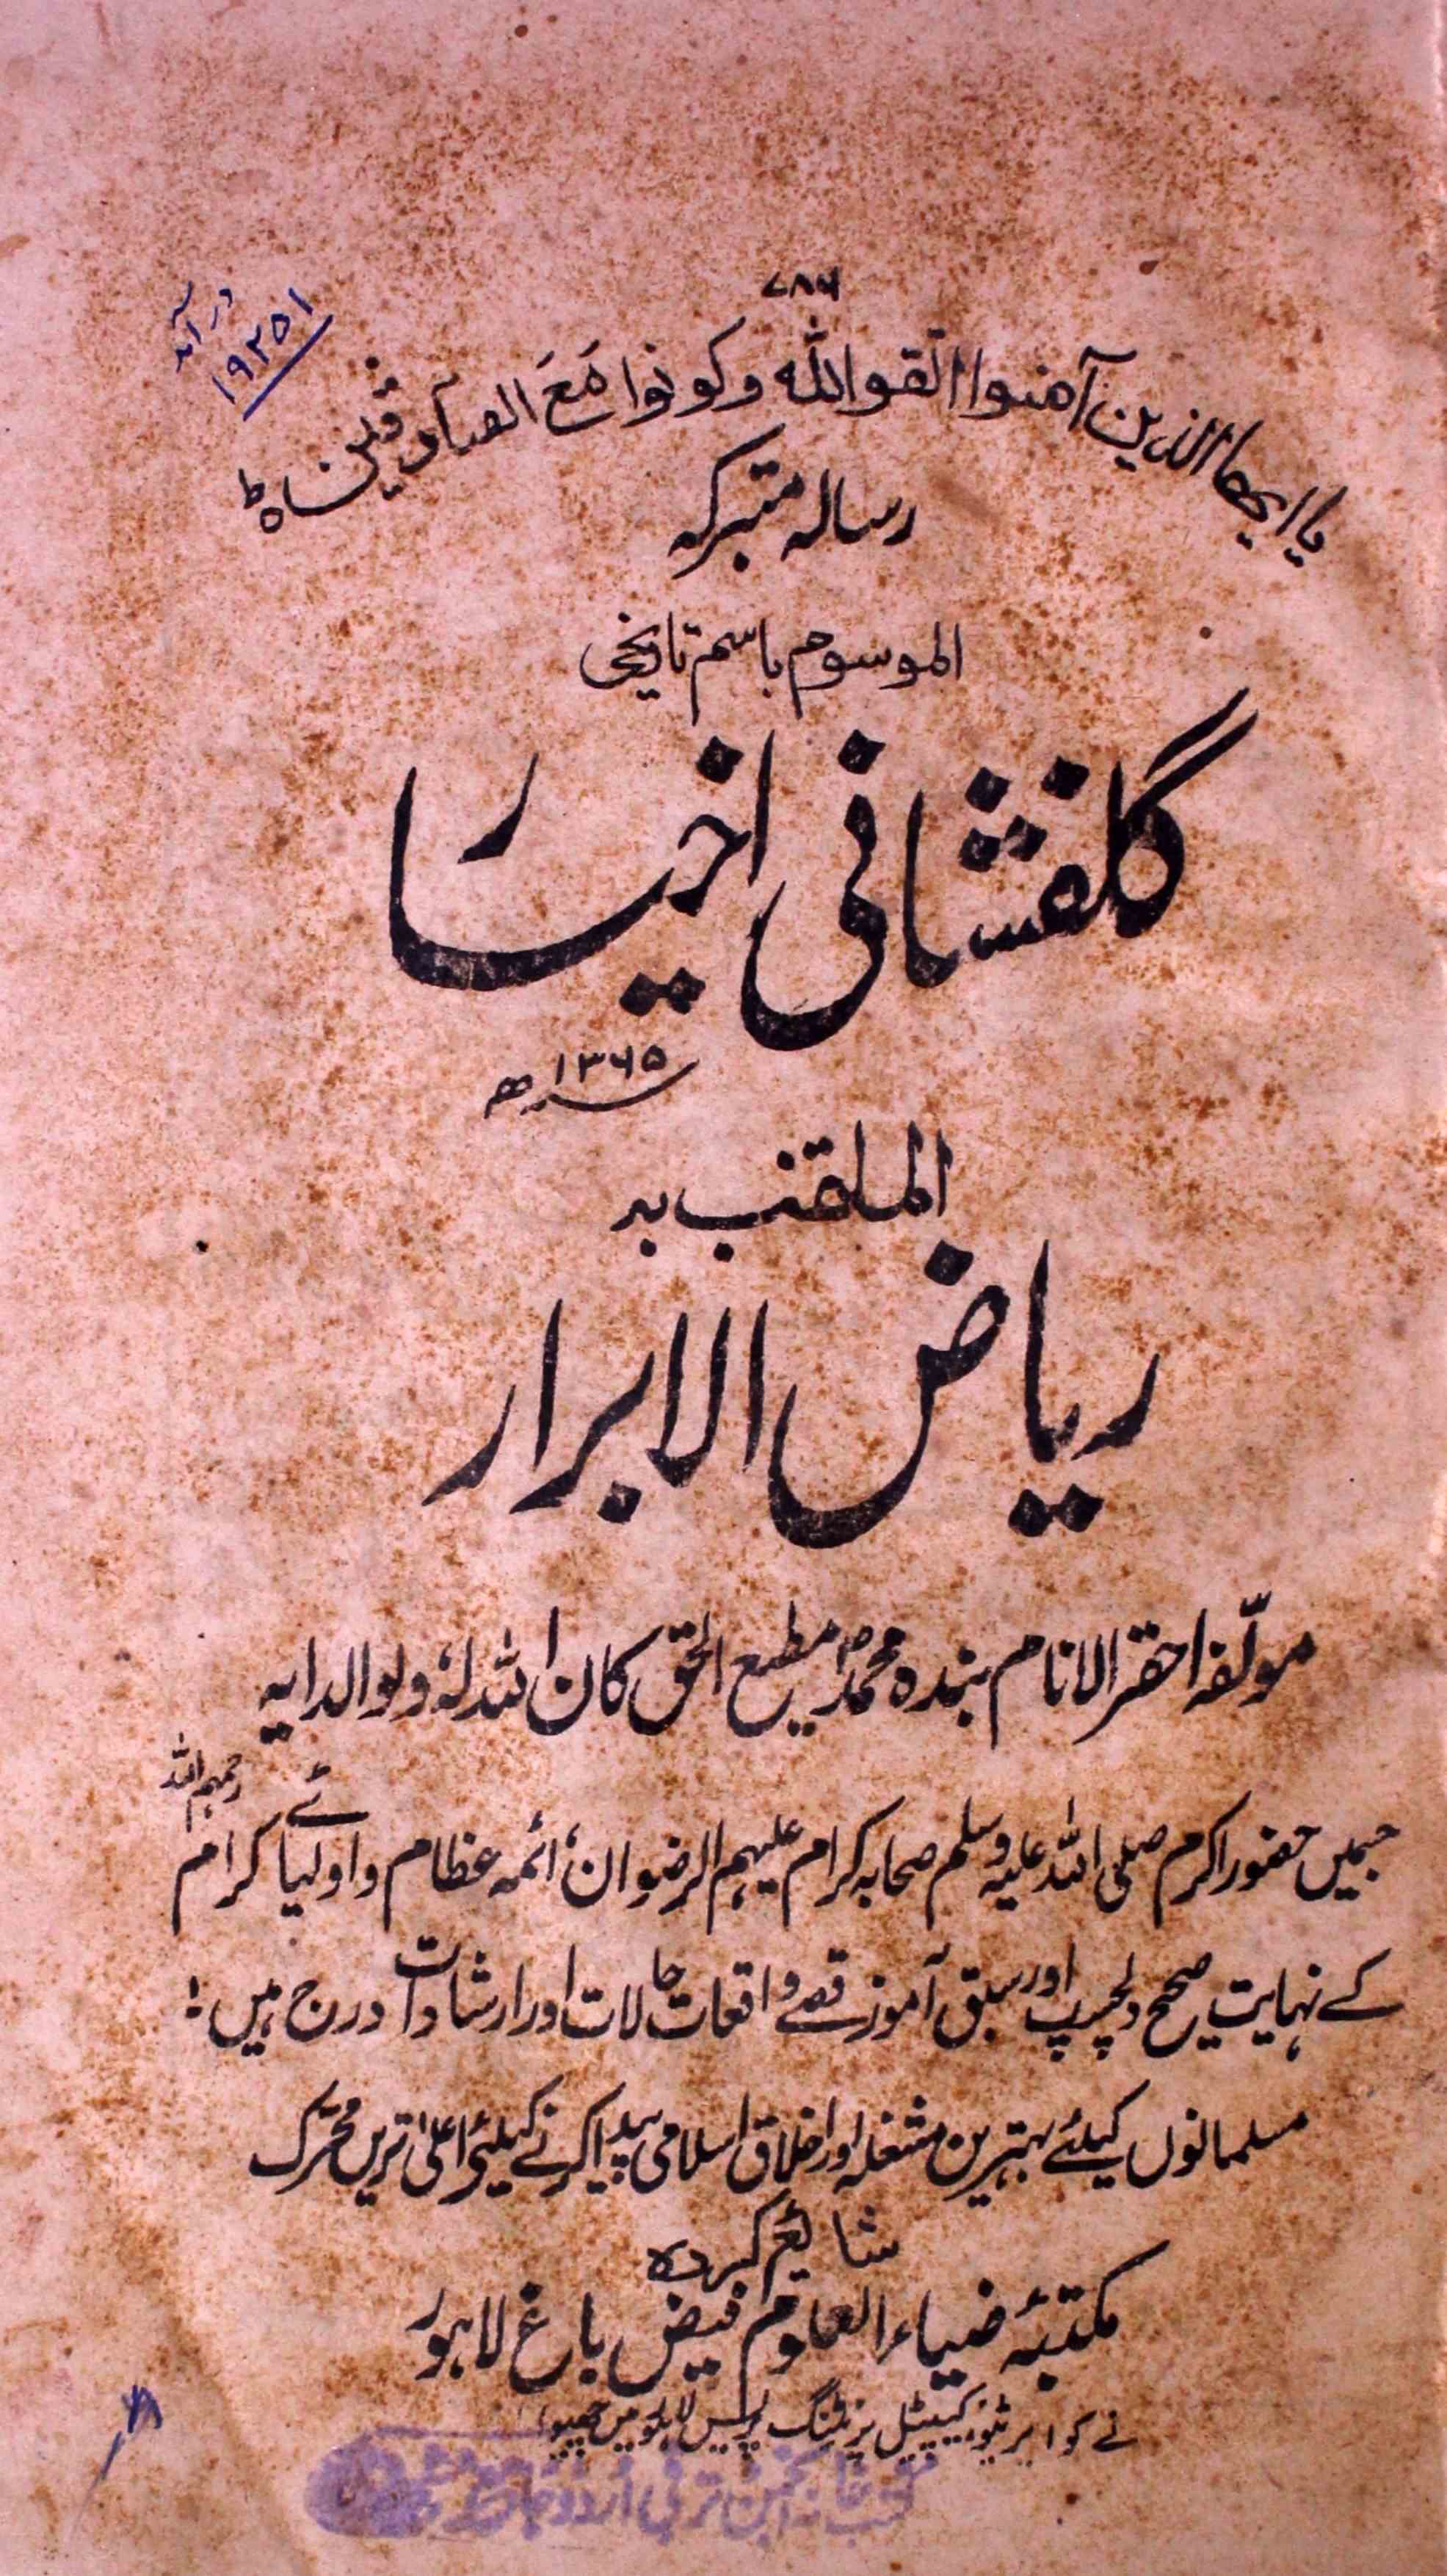 ۷۸۶
در آمد
۱۹۲۵۱
یا ایھا الذین آمنوا اتقو اللہ وکونوا مَعَ الصادقین ہ ط
رسالہ متبرکہ
الموسوم باسم تاریخی
گلفشانی اخیار
۱۳۶۵ھ
الملقب بہ
ریاض الابرار
مولّفہ احقر الانام بندہ محمدؐ مطیع الحق کان اللہ لہٗ ولوالدایہ
جسمیں حضور اکرم صلی اللہ علیہ وسلم صحابہ کرام علیہم الرضوان، ائمہ عظام و اولیائے کرام رحمہم اللہ
کے نہایت صحیح دلچسپ اور سبق آموز قصے و اقعات حالات اور ارشادات درج ہیں :
مسلمانوں کیلئے بہترین مشغلہ اور اخلاق اسلامی پیدا کرنے کیلئے اعلیٰ ترین محرّک
شائع کردہ
مکتبۂ ضیاء العلوم فیض باغ لاہور
نے کو اپریٹو کیپیٹل پرنٹنگ پریس لاہور میں چھپوا
کتب خانہ انجمن ترقی اردو جامع مسجد